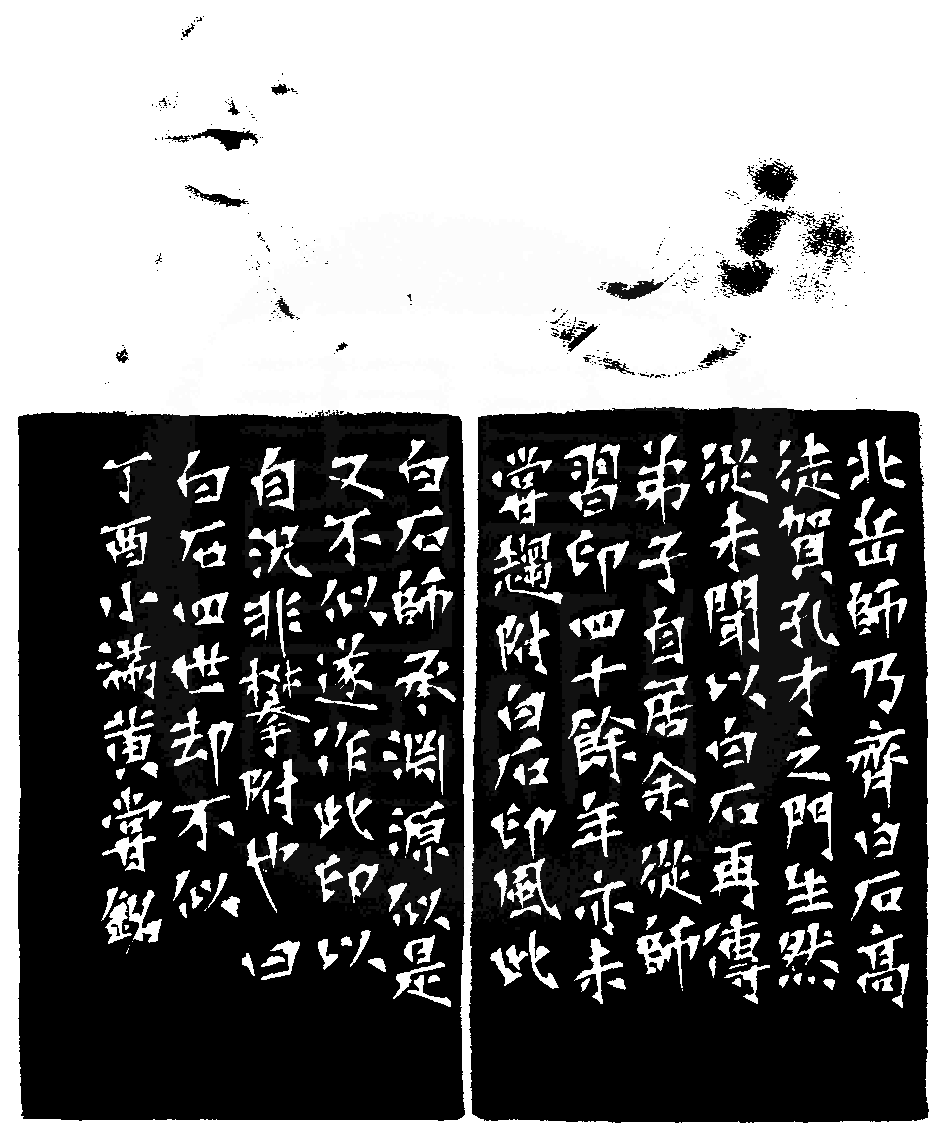 北岳師乃齊白石高
徒賀孔才之門生然
從未聞以白石再傳
弟子自居余從師
習印四十餘年亦未
嘗趨附白石印風此
白石師承淵源似是
又不似遂作此印以
自況非攀附也曰
白石四世却不似
丁酉小滿黄嘗銘